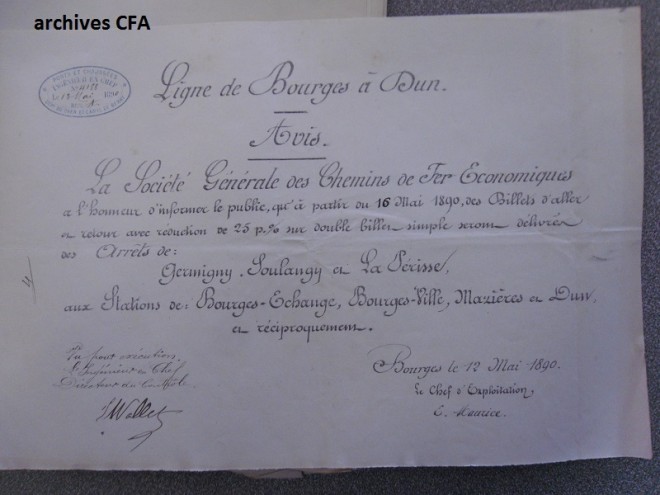 archives CFA
PONTS ET CHAUSSÉES
INGÉNIEUR EN CHEF
Ligne de Bourges à Dun.
Avis.
La Société Générale des Chemins de Fer Economiques
a l'honneur d'informer le public, qu'à partir du 16 Mai 1890, des Billets d'aller
et retour avec réduction de 25 p.% sur double billet simple seront délivrés
des Arrêts de:
Germigny, Soulangy et La Périsse,
aux Stations de: Bourges-Echange, Bourges-Ville, Mazières et Dun,
et réciproquement.
Bourges le 12 Mai 1890.
Le Chef d'Exploitation,
E. Maurice.
Vu pour exécution,
L'Ingénieur en Chef
Directeur du Contrôle